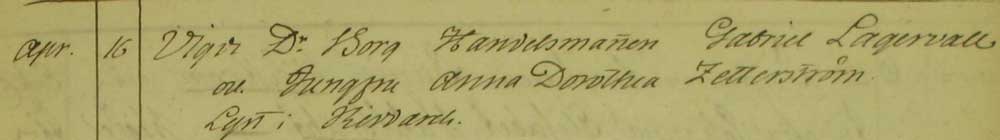 Apr. 16 Vigde Dr Borg Handelsmañen Gabriel Lagervall
o. Jungfru Anna Dorothea Zetterström.
Lyst i